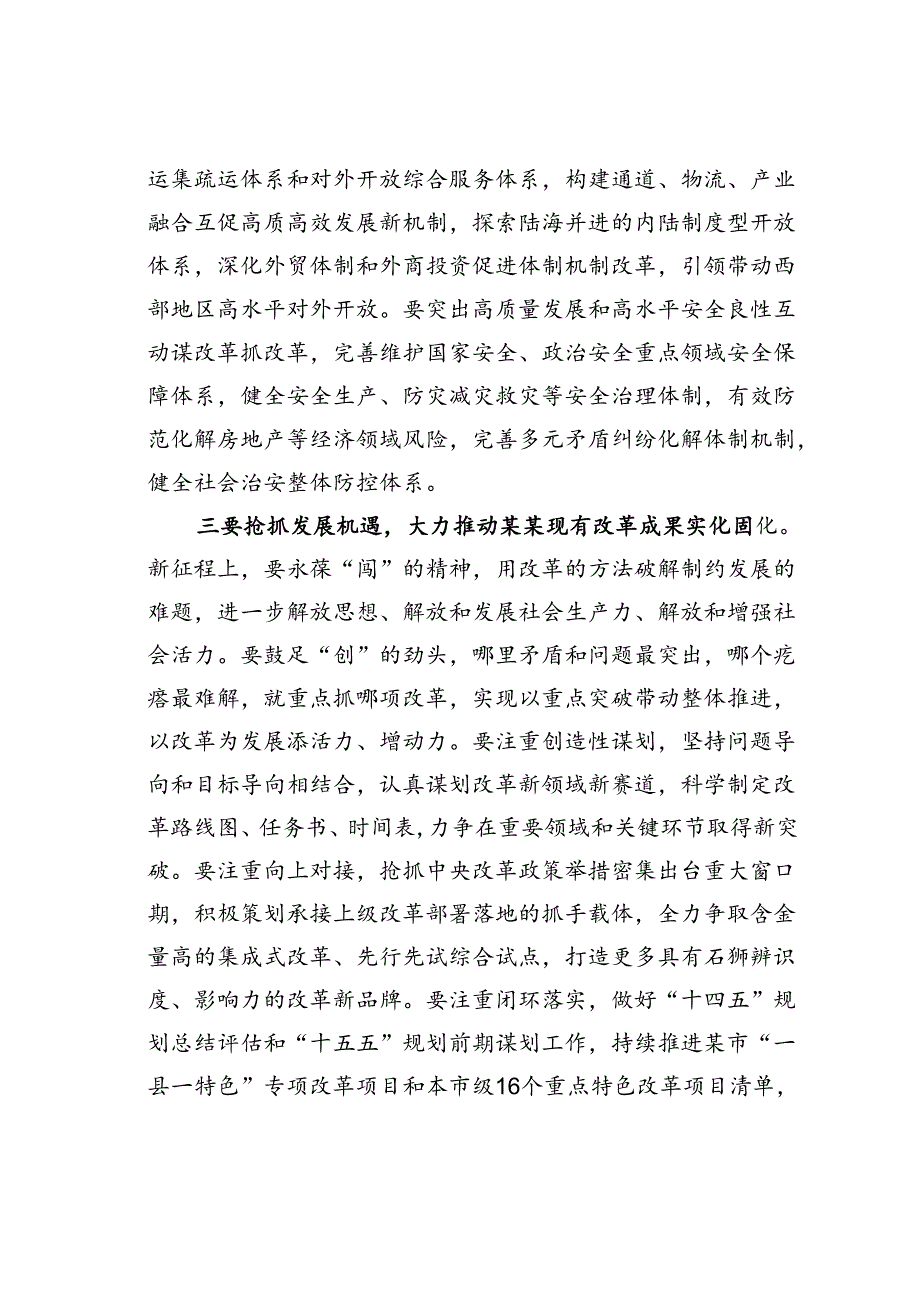 运集疏运体系和对外开放综合服务体系，构建通道、物流、产业
融合互促高质高效发展新机制，探索陆海并进的内陆制度型开放
体系，深化外贸体制和外商投资促进体制机制改革，引领带动西
部地区高水平对外开放。要突出高质量发展和高水平安全良性互
动谋改革抓改革，完善维护国家安全、政治安全重点领域安全保
障体系，健全安全生产、防灾减灾救灾等安全治理体制，有效防
范化解房地产等经济领域风险，完善多元矛盾纠纷化解体制机制，
健全社会治安整体防控体系。
三要抢抓发展机遇，大力推动某某现有改革成果实化固化。
新征程上，要永葆“闯”的精神，用改革的方法破解制约发展的
难题，进一步解放思想、解放和发展社会生产力、解放和增强社
会活力。要鼓足“创”的劲头，哪里矛盾和问题最突出，哪个疙
瘩最难解，就重点抓哪项改革，实现以重点突破带动整体推进，
以改革为发展添活力、增动力。要注重创造性谋划，坚持问题导
向和目标导向相结合，认真谋划改革新领域新赛道，科学制定改
革路线图、任务书、时间表，力争在重要领域和关键环节取得新突
破。要注重向上对接，抢抓中央改革政策举措密集出台重大窗口
期，积极策划承接上级改革部署落地的抓手载体，全力争取含金
量高的集成式改革、先行先试综合试点，打造更多具有石狮辨识
度、影响力的改革新品牌。要注重闭环落实，做好“十四五”规
划总结评估和“十五五”规划前期谋划工作，持续推进某市“一
县一特色”专项改革项目和本市级16个重点特色改革项目清单，